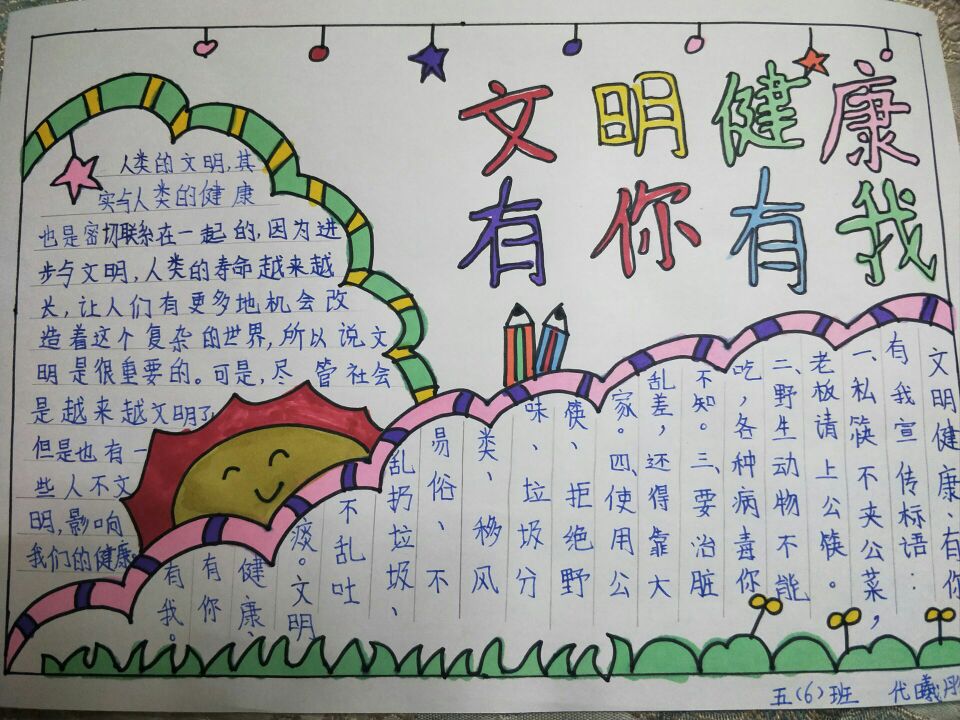 文明健康
有你有我
人类的文明,其
实与人类的健康
也是密切联系在一起的,因为进
步与文明,人类的寿命越来越
长,让人们有更多地机会改
造着这个复杂的世界,所以说文
明是很重要的。可是,尽管社会
是越来越文明了
但是也有一
些人不文
明,影响
我们的健康
文明健康、有你
有我宣传标语:
一、私筷不夹公菜,
老板请上公筷。
二、野生动物不能
吃,各种病毒你
不知。三、要治脏
乱差,还得靠大
家。四、使用公
筷、拒绝野
味、垃圾分
类、移风
易俗、不
乱扔垃圾、
不乱吐
痰。文明
健康、
有你
有我。
五(6)班 代曦彤